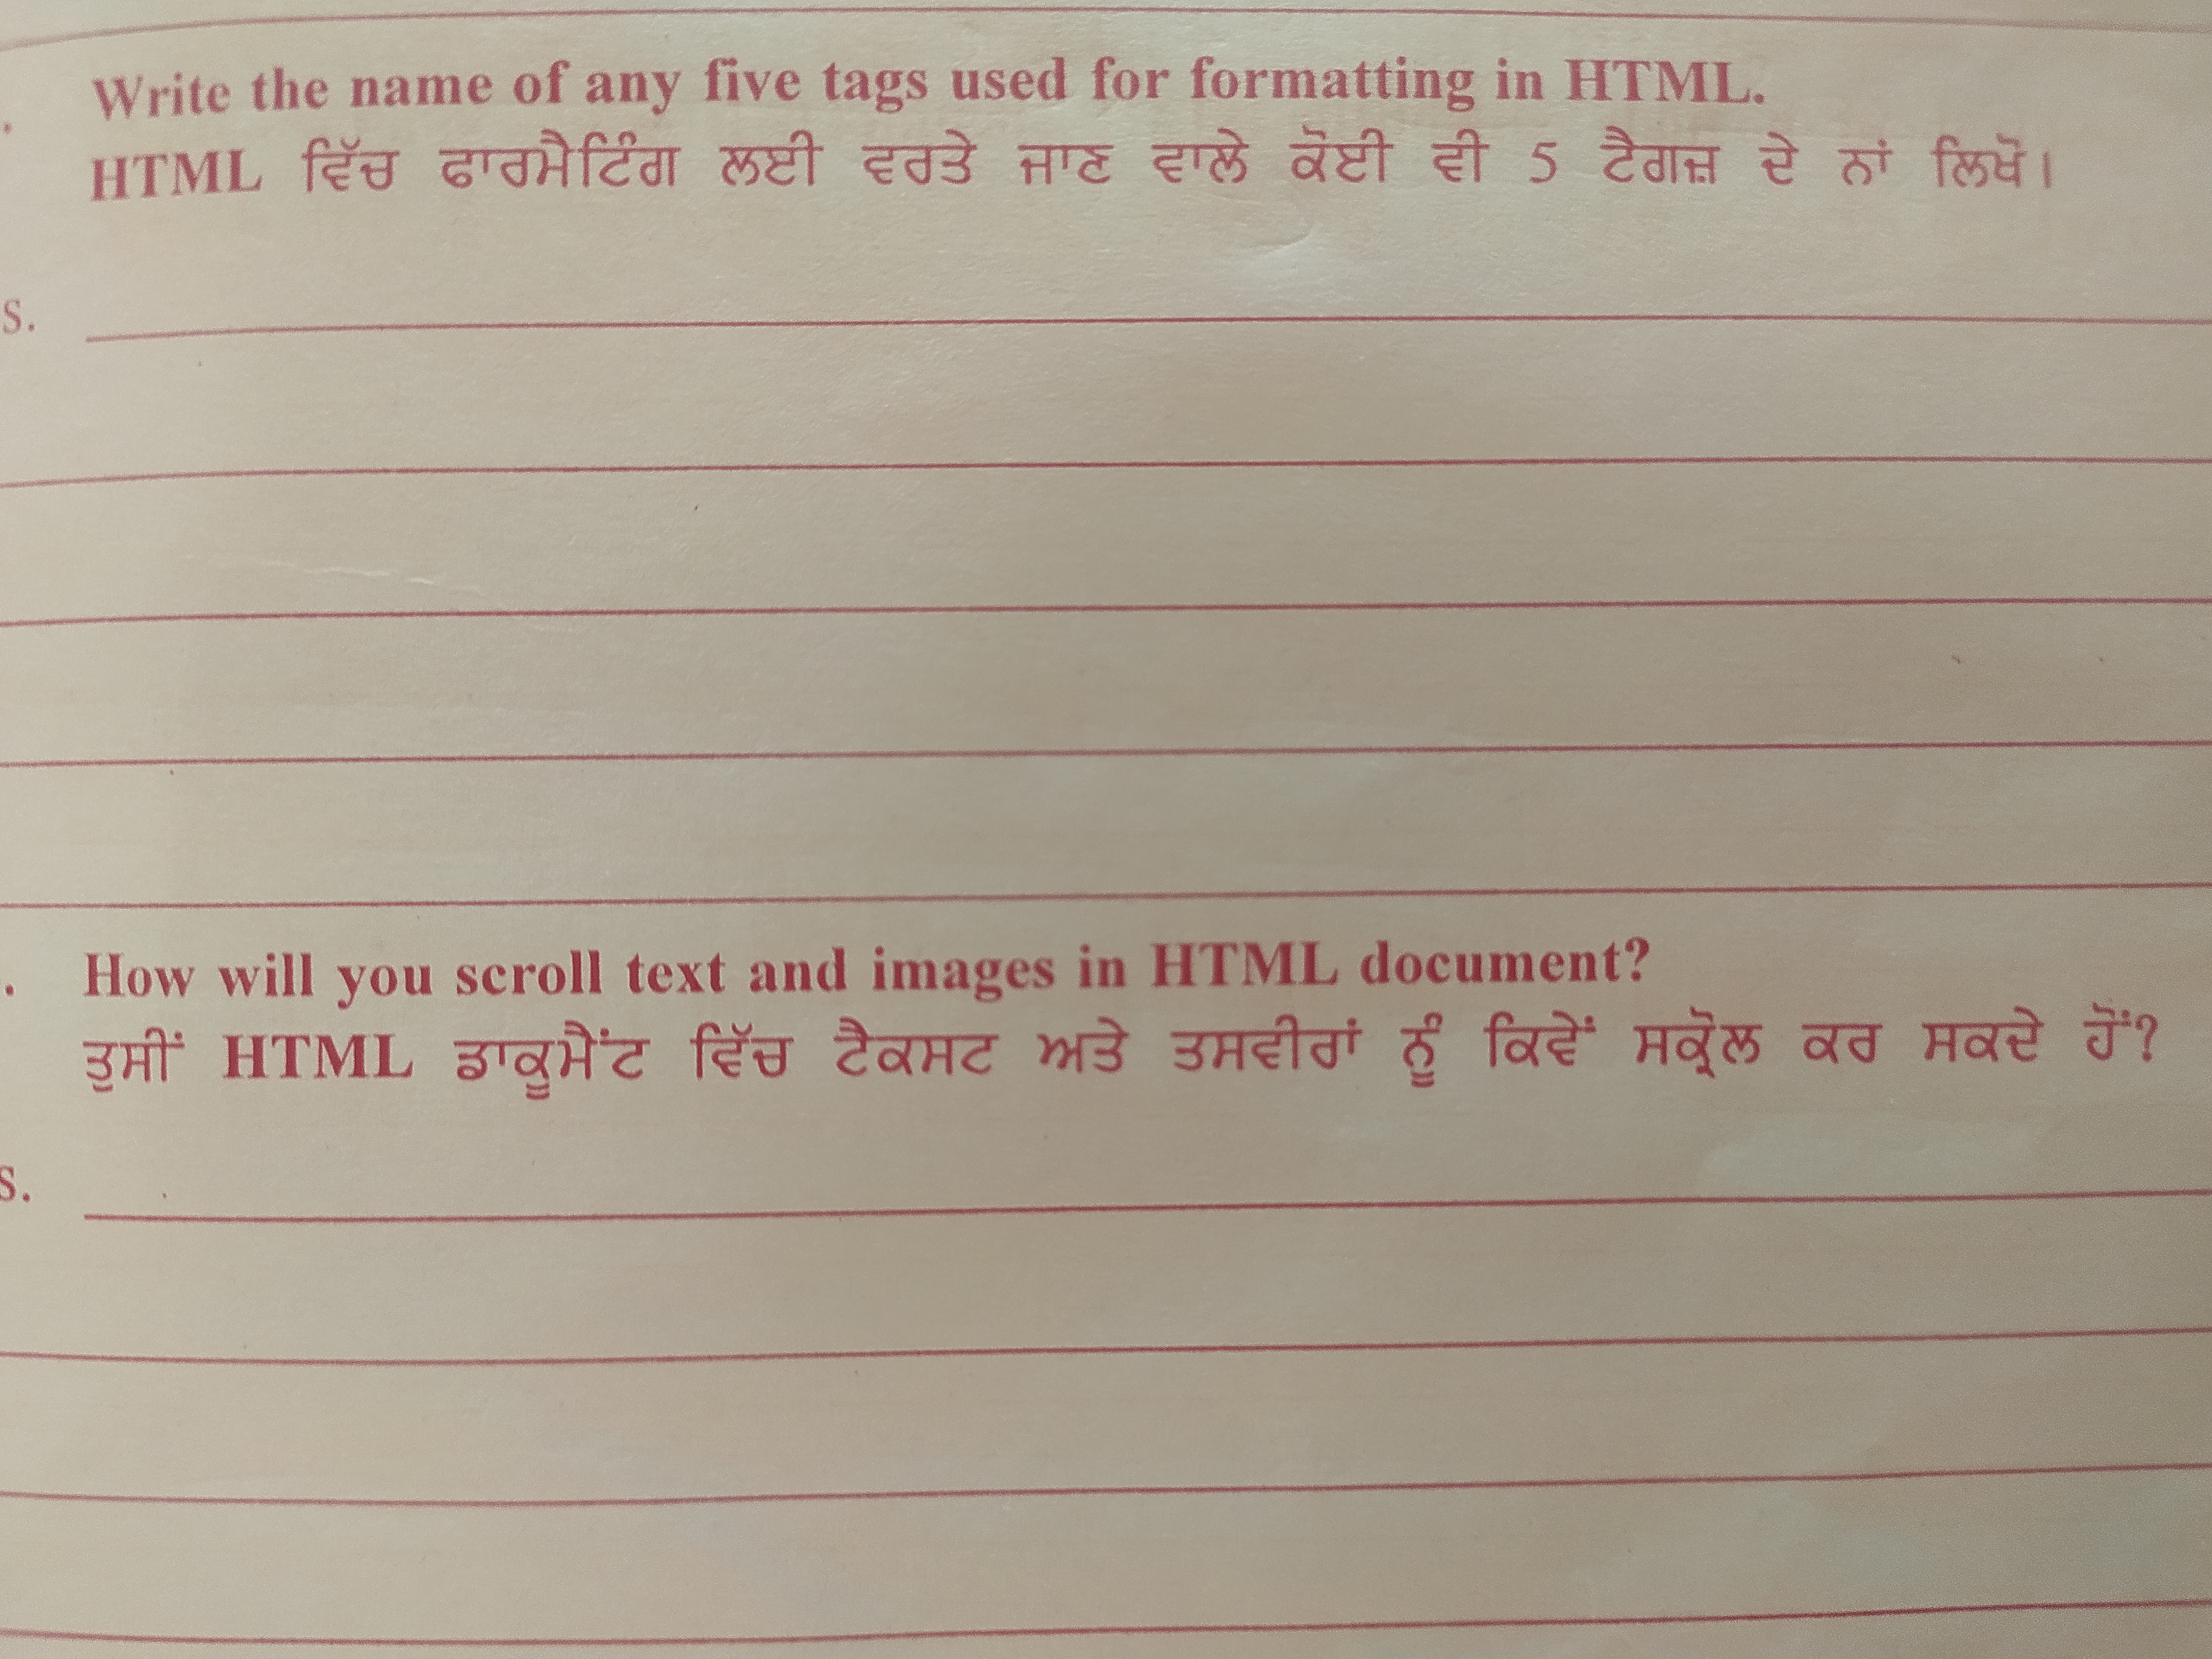 . Write the name of any five tags used for formatting in HTML.
HTML ਵਿੱਚ ਫਾਰਮੈਟਿੰਗ ਲਈ ਵਰਤੇ ਜਾਣ ਵਾਲੇ ਕੋਈ ਵੀ 5 ਟੈਗਜ਼ ਦੇ ਨਾਂ ਲਿਖੋ।
s.
. How will you scroll text and images in HTML document?
ਤੁਸੀਂ HTML ਡਾਕੂਮੈਂਟ ਵਿੱਚ ਟੈਕਸਟ ਅਤੇ ਤਸਵੀਰਾਂ ਨੂੰ ਕਿਵੇਂ ਸਕ੍ਰੋਲ ਕਰ ਸਕਦੇ ਹੋਂ?
s.